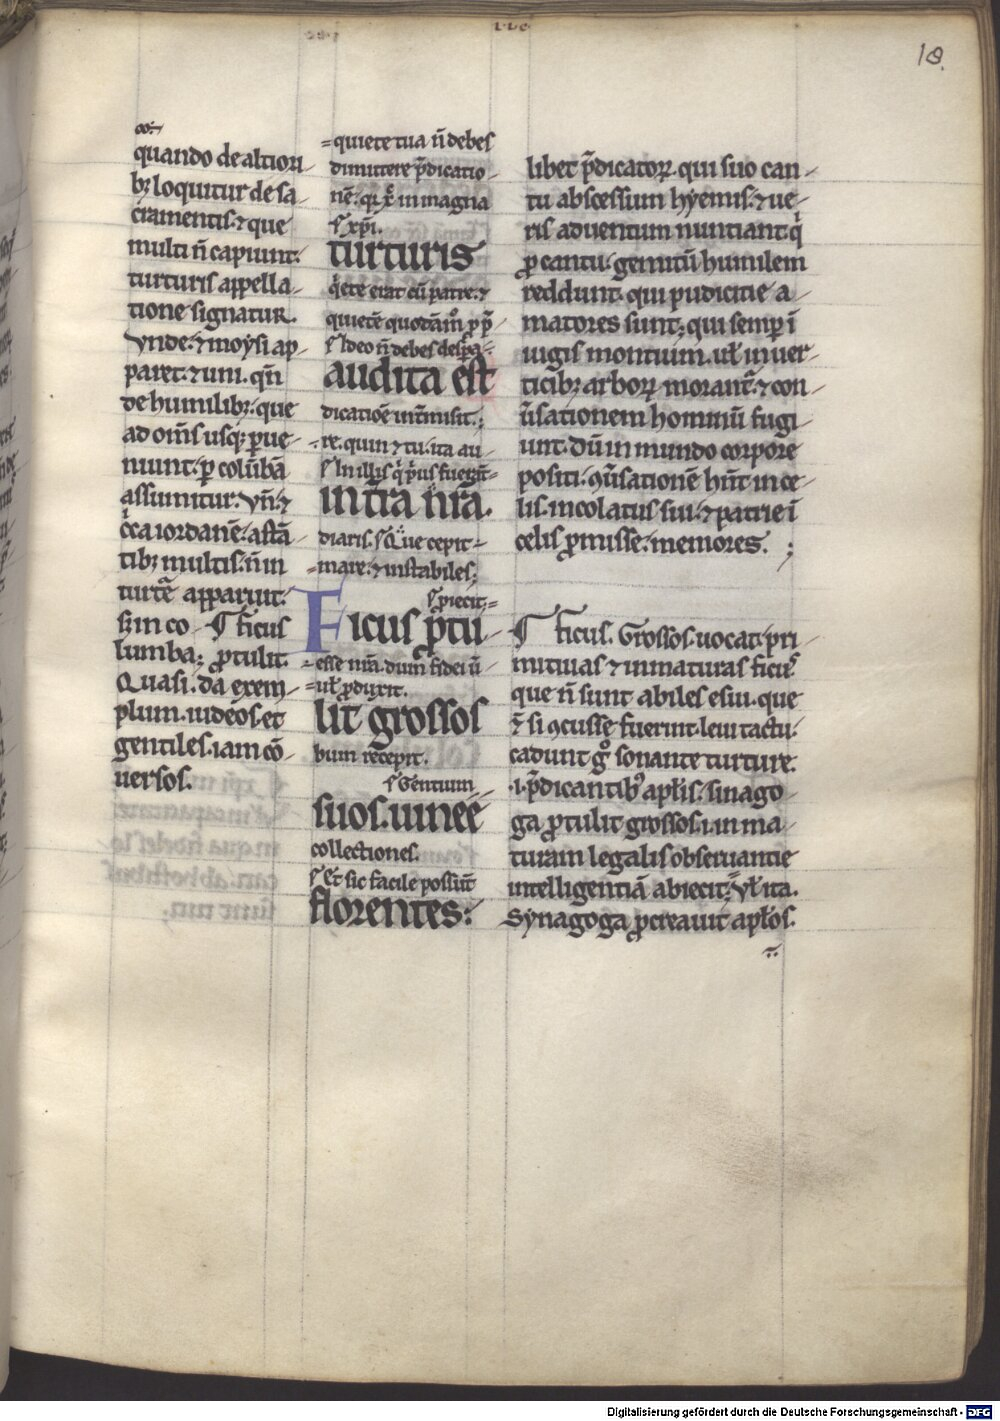 18.
quando de altiori-
bꝫ loquitur de sa-
cramentis. ⁊ que
multi n̄ capiunt.
turturis appella-
tione signatur.
Vnde. ⁊ moysi ap-
paret. ⁊ uni. qn̄
de humilibꝫ. que
ad om̄s usqꝫ ꝑue-
niunt. ꝑ colūbā
assumitur. Vn̄. ⁊
cͥca iordanē. astā-
tibꝫ multis. n̄ in
turtē apparuit.
sꝫ in co- ¶ ficus
lumba; ꝓtulit.
Quasi. da exem-
plum. uideos et
gentiles. iam cō-
uersos.
=quiete tua n̄ debes
dimittere p̄dicatio-
nē. qꝛ xp̄ in magna
.s. xp̄i.
turturis
qͥete erat cū patre. ⁊
quietē quodāmͦ ꝓ p̄-
.s. Ideo n̄ debes despa-
audita est
dicatiōe int̄misit.
re. quin ⁊ tu. ita au-
.s. In illis qͥ pͥus fuerūt=
in t̄ra nr̄a.
diaris. s. Que cepit=
=mare. ⁊ instabiles;
s. piecit.=
Ficus ꝓtu-
=esse nr̄a. dum fidei ū-
=ul̄ ꝓduxit.
lit grossos
bum recepit.
s. Gentium
suos. uineē
collectiones.
s. Et sic facile possūt
florentes:
libet p̄dicatoꝝ. qui suo can-
tu abscessum hyemis. ⁊ ue-
ris aduentum nuntiant. qͥ
ꝓ cantu. gemitū humilem
reddunt. qui pudicitie a-
matores sunt; qui semꝑ ī
iugis montium. ul̄ in uer-
ticibꝫ arboꝝ morant᷑. ⁊ con-
ūsationem hominū fugi-
unt. dū in mundo corpore
positi. ꝯūsationē hn̄t in ce-
lis. incolatus sui. ⁊ patrie ī
celis ꝓmisse. memores. ;
¶ ficus. Grossos. uocat. pri-
mitiuas ⁊ inmaturas ficus
que n̄ sunt abiles esui. que
⁊ si ꝯcusse fuerint. leui tactu.
cadunt gͦ sonante turture.
.i. p̄dicantibꝰ apl̄is. sinago-
ga ꝓtulit grossos. i. inma-
turam legalis obseruantie
intelligentiā abiecit; Vl̄ ita.
Synagoga ꝓcreauit apl̄os.
Digitalisierung gefördert durch die Deutsche Forschungsgemeinschaft - DFG